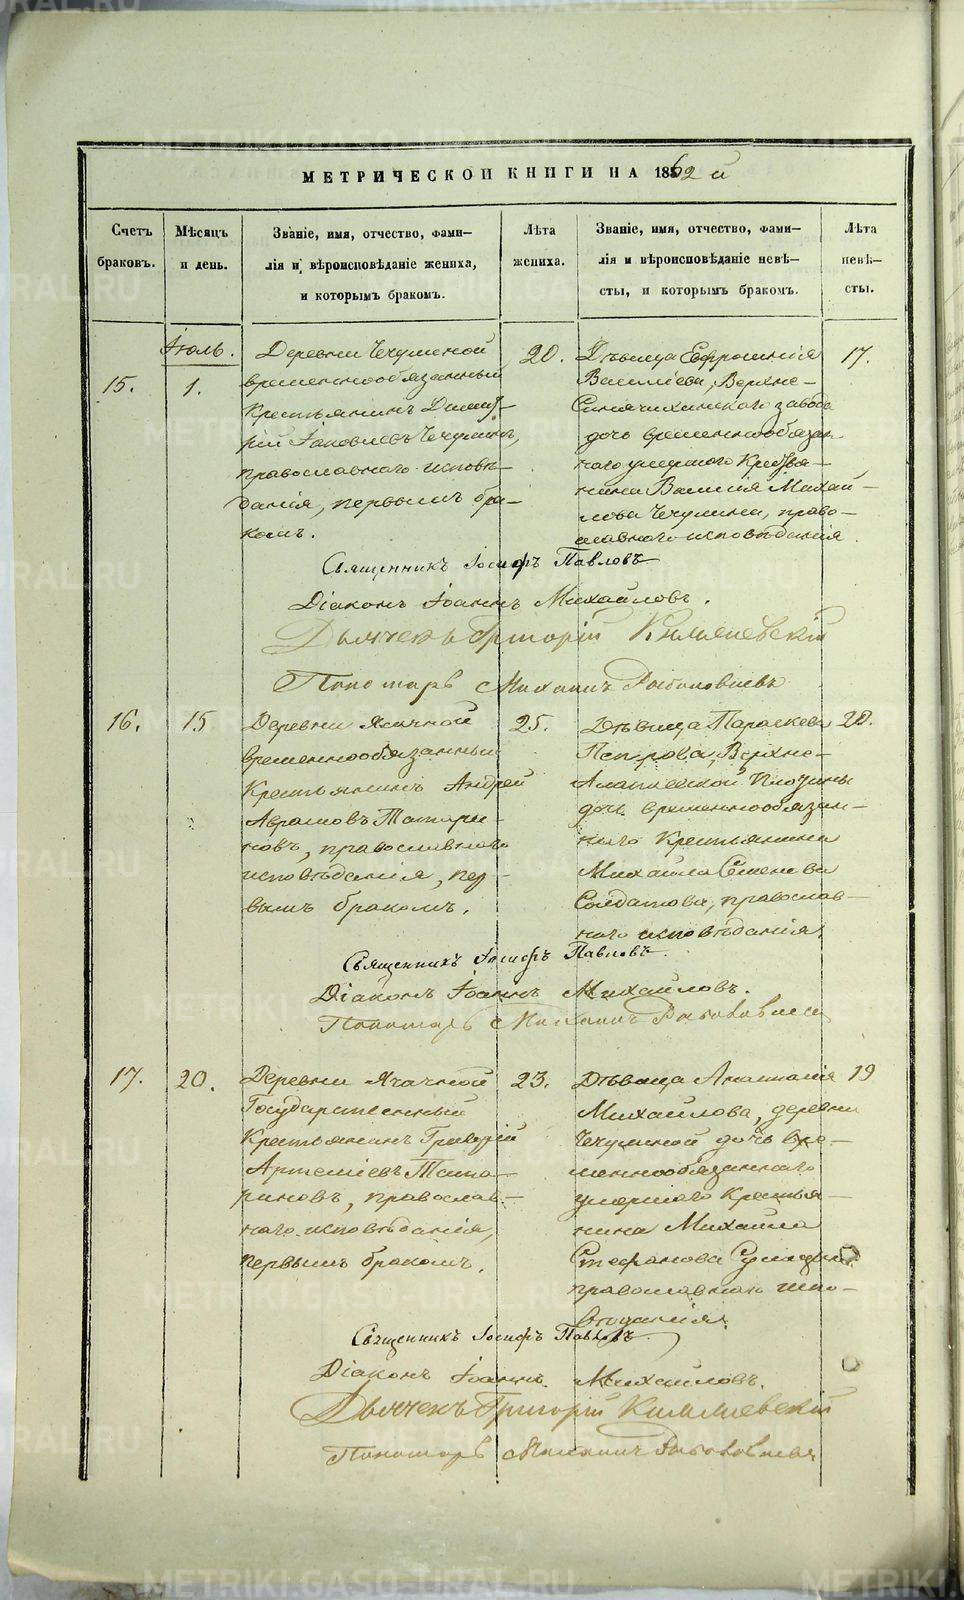 МЕТРИЧЕСКОЙ КНИГИ НА 1862 й
Счетъ браковъ.
Мѣсяцъ и день.
Званіе, имя, отчество, фами-
лія и вѣроисповѣданіе жениха,
и которымъ бракомъ.
Лѣта жениха.
Званіе, имя, отчество, фами-
лія и вѣроисповѣданіе невѣ-
сты, и которымъ бракомъ.
Лѣта невѣ-
сты.
Іюль.
15.
1.
Деревни Чечулиной
временнообязанный
Крестьянинъ Димит-
рій Іаковлевъ Чечулинъ,
православнаго исповѣ-
данія, первымъ бра-
комъ.
20.
Дѣвица Евфросинія
Васильева, Верхне-
Синячихинскаго завода
дочь временнообязан
наго умершаго Крестья-
нина Василія Михай-
лова Чечулина, право-
славнаго исповѣданія.
17.
Священникъ Іосифъ Павловъ
Діаконъ Іоаннъ Михайловъ.
Дьячекъ Григорій
Пономарь Михаилъ
16.
15.
Деревни Ясачной
временнообязанный
Крестьянинъ Андрей
Аврамовъ Татари-
новъ, православнаго
исповѣданія, пер-
вымъ бракомъ.
25.
Дѣвица Параскева
Петрова, Верхне-
Алапаевской
дочь временнообязан-
наго Крестьянина
Михаила Семенова
Солдатова, православ-
наго исповѣданія.
20.
Священникъ Іосифъ Павловъ.
Діаконъ Іоаннъ Михайловъ.
Пономарь Михаилъ
17.
20.
Деревни Ясачной
Государственный
Крестьянинъ Григорій
Артеміевъ Тата-
риновъ, православ-
наго исповѣданія,
первымъ бракомъ.
23.
Дѣвица Анастасія
Михайлова, деревни
Чечулиной дочь вре-
меннообязаннаго
умершаго Крестья-
нина Михаила
Стефанова
православнаго испо-
вѣданія.
19
Священникъ Іосифъ Павловъ.
Діаконъ Іоаннъ Михайловъ.
Дьячекъ Григорій
Пономарь Михаилъ
METRIKI.GASO-URAL.RU